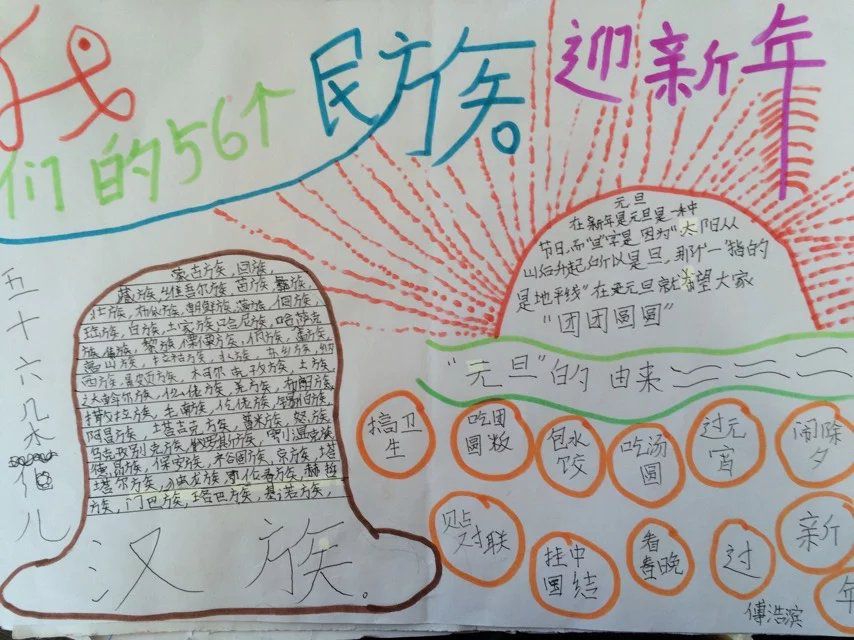 我
们的56个
民族。
迎新年
五十六几朵
花儿
蒙古族,回族,
藏族,维吾尔族,苗族,彝族,
壮族,布依族,朝鲜族,满族,侗族,
瑶族,白族,土家族,哈尼族,哈萨克
族,傣族,黎族,傈僳族,佤族,畲族,
高山族,拉祜族,水族,东乡族,纳
西族,景颇族,柯尔克孜族,土族,
达斡尔族,仫佬族,羌族,布朗族,
撒拉族,毛南族,仡佬族,锡伯族,
阿昌族,塔吉克族,普米族,怒族,
乌孜别克族,俄罗斯族,鄂温克族,
德昂族,保安族,裕固族,京族,塔
塔尔族,独龙族,鄂伦春族,赫哲
族,门巴族,珞巴族,基诺族,
汉族。
元旦
在新年是元旦是一种
节日,而“旦”字是因为“太阳从
山后升起,所以是旦,那个一“指的
是地平线”在是元旦就希望大家
“团团圆圆”
“元旦”的由来
搞卫
生
吃团
圆饭
包水
饺
吃汤
圆
过元
宵
闹除
夕
贴
对联
挂中
国结
看
春晚
过
新
年
傅浩滨